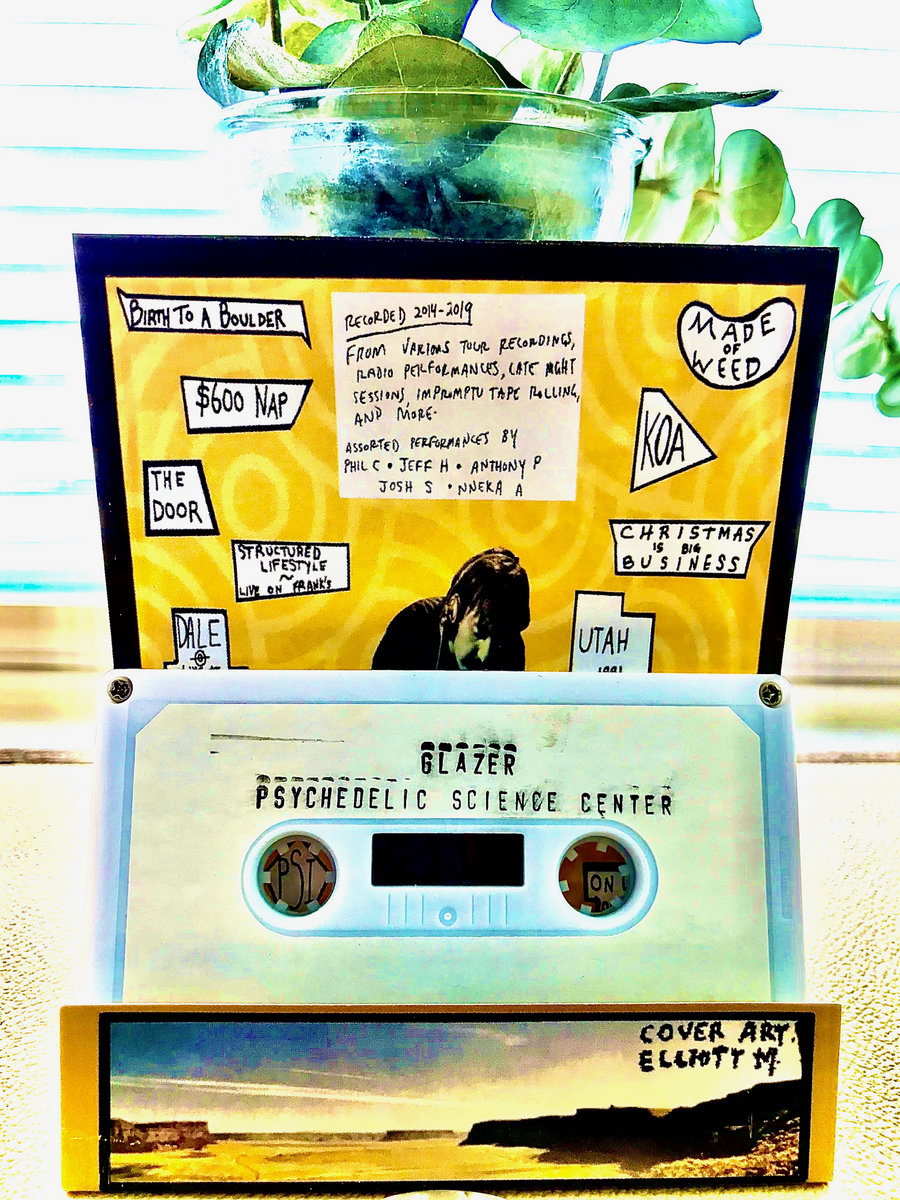 BIRTH TO A BOULDER
$600 NAP
THE
DOOR
STRUCTURED
LIFESTYLE
~
LIVE ON FRANK'S
DALE
RECORDED 2014-2019
FROM VARIOUS TOUR RECORDINGS,
RADIO PERFORMANCES, LATE NIGHT
SESSIONS, IMPROMPTU TAPE ROLLING,
AND MORE.
ASSORTED PERFORMANCES BY
PHIL C • JEFF H • ANTHONY P
JOSH S • NNEKA A
MADE
OF
WEED
KOA
CHRISTMAS
IS BIG
BUSINESS
UTAH
GLAZER
PSYCHEDELIC SCIENCE CENTER
PSI
ON
COVER ART:
ELLIOTT M.